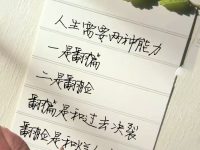 人生需要两种能力
一是翻篇
二是翻脸
翻篇是和过去决裂
翻脸是和